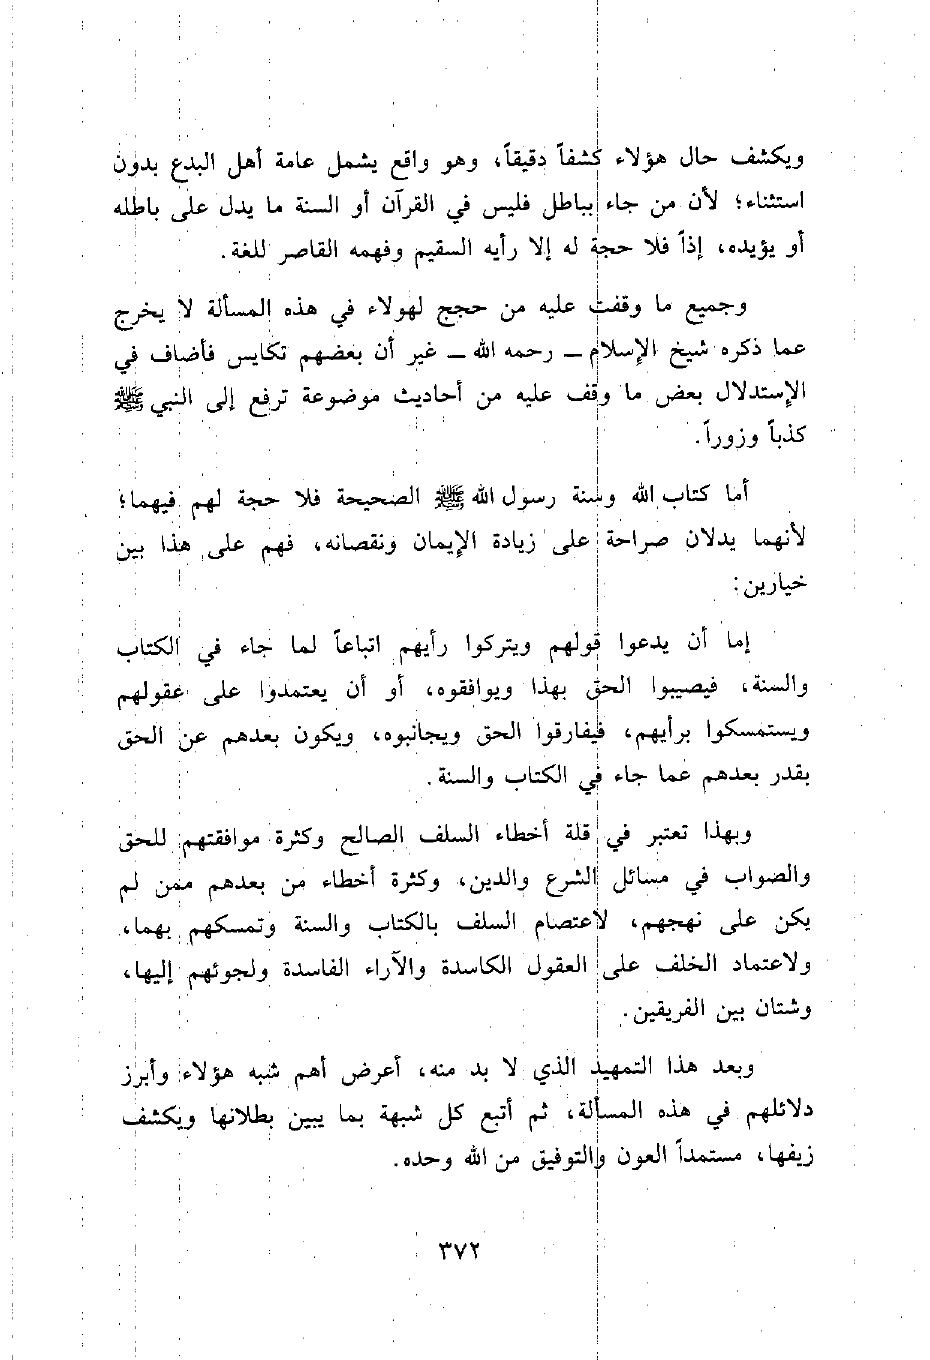 ويكشف حال هؤلاء كشفاً دقيقاً، وهو واقع يشمل عامة أهل البدع بدون
استثناء؛ لأن من جاء بباطل فليس في القرآن أو السنة ما يدل على باطله
أو يؤيده، إذاً فلا حجة له إلا رأيه السقيم وفهمه القاصر للغة.
وجميع ما وقفت عليه من حجج لهولاء في هذه المسألة لا يخرج
عما ذكره شيخ الإسلام ـ رحمه الله ـ غير أن بعضهم تكايس فأضاف في
الإستدلال بعض ما وقف عليه من أحاديث موضوعة ترفع إلى النبي ﷺ
كذباً وزوراً.
أما كتاب الله وسنة رسول الله ﷺ الصحيحة فلا حجة لهم فيهما؛
لأنهما يدلان صراحة على زيادة الإيمان ونقصانه، فهم على هذا بين
خيارين:
إما أن يدعوا قولهم ويتركوا رأيهم اتباعاً لما جاء في الكتاب
والسنة، فيصيبوا الحق بهذا ويوافقوه، أو أن يعتمدوا على عقولهم
ويستمسكوا برأيهم، فيفارقوا الحق ويجانبوه، ويكون بعدهم عن الحق
بقدر بعدهم عما جاء في الكتاب والسنة.
وبهذا تعتبر في قلة أخطاء السلف الصالح وكثرة موافقتهم للحق
والصواب في مسائل الشرع والدين، وكثرة أخطاء من بعدهم ممن لم
يكن على نهجهم، لاعتصام السلف بالكتاب والسنة وتمسكهم بهما،
ولاعتماد الخلف على العقول الكاسدة والآراء الفاسدة ولجوئهم إليها،
وشتان بين الفريقين.
وبعد هذا التمهيد الذي لا بد منه، أعرض أهم شبه هؤلاء وأبرز
دلائلهم في هذه المسألة، ثم أتبع كل شبهة بما يبين بطلانها ويكشف
زيفها، مستمداً العون والتوفيق من الله وحده.
٣٧٢